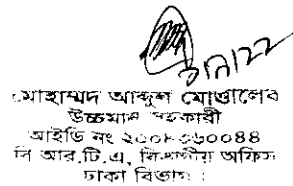 মোহাম্মদ আব্দুল মোত্তালেব
উচ্চমান সহকারী
আইডি নং ২০০৮০৬০০৪৪
বি আর.টি.এ, বিভাগীয় অফিস
ঢাকা বিভাগ ।